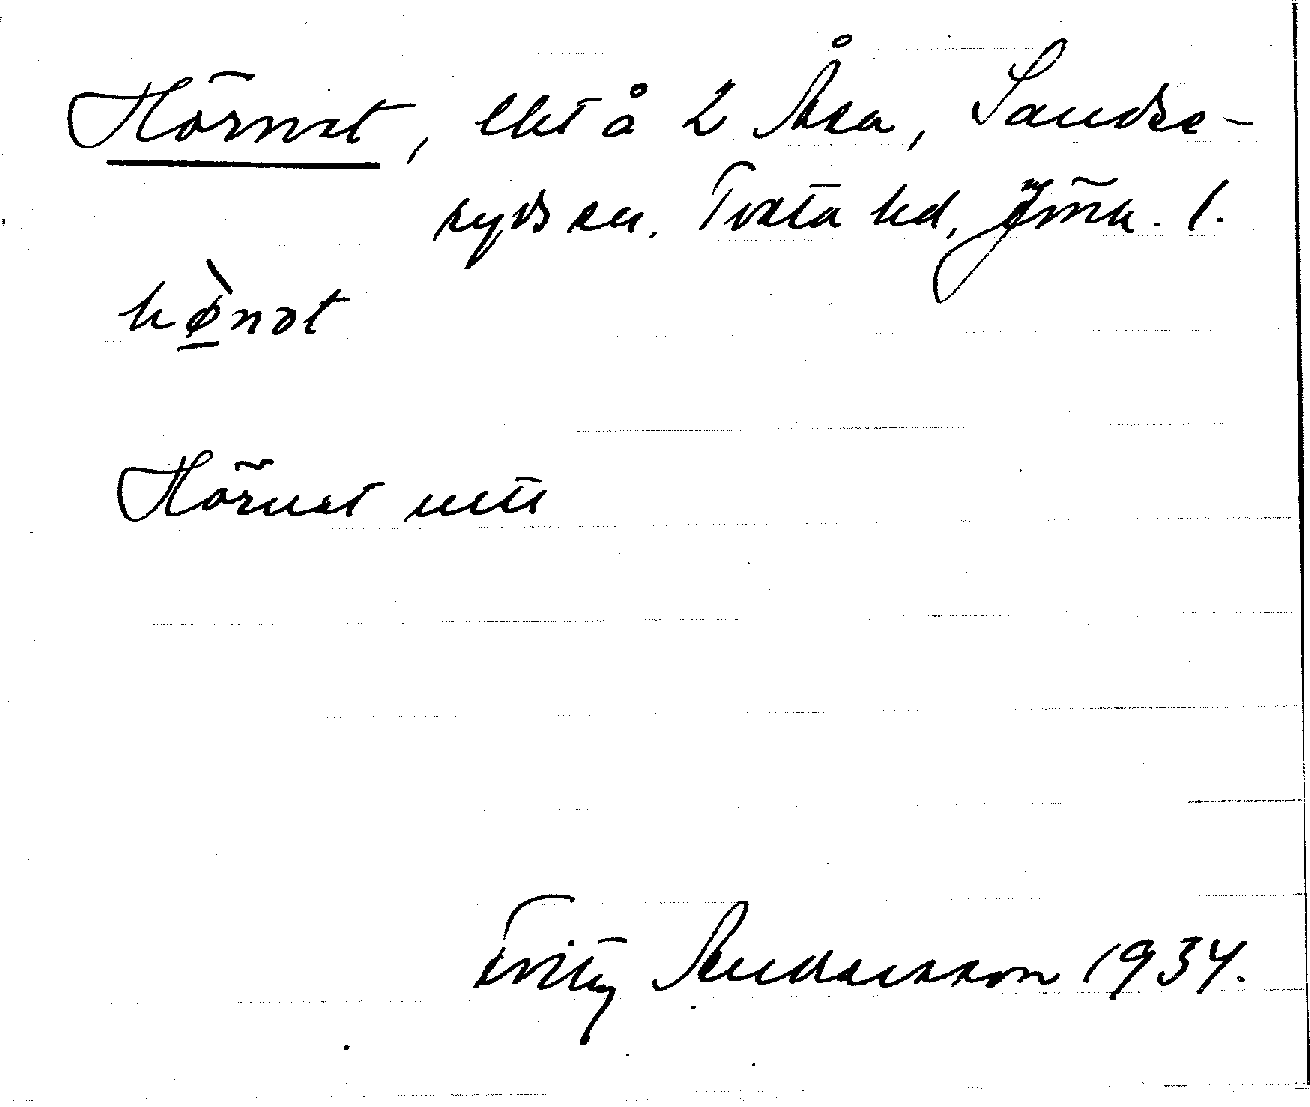 Hörnet, lht å 2 Åsa, Sandse-
ryds sn. Tveta hd, Jönk. l.
hø̀nət
Hörnet
Fritz Andersson 1934.